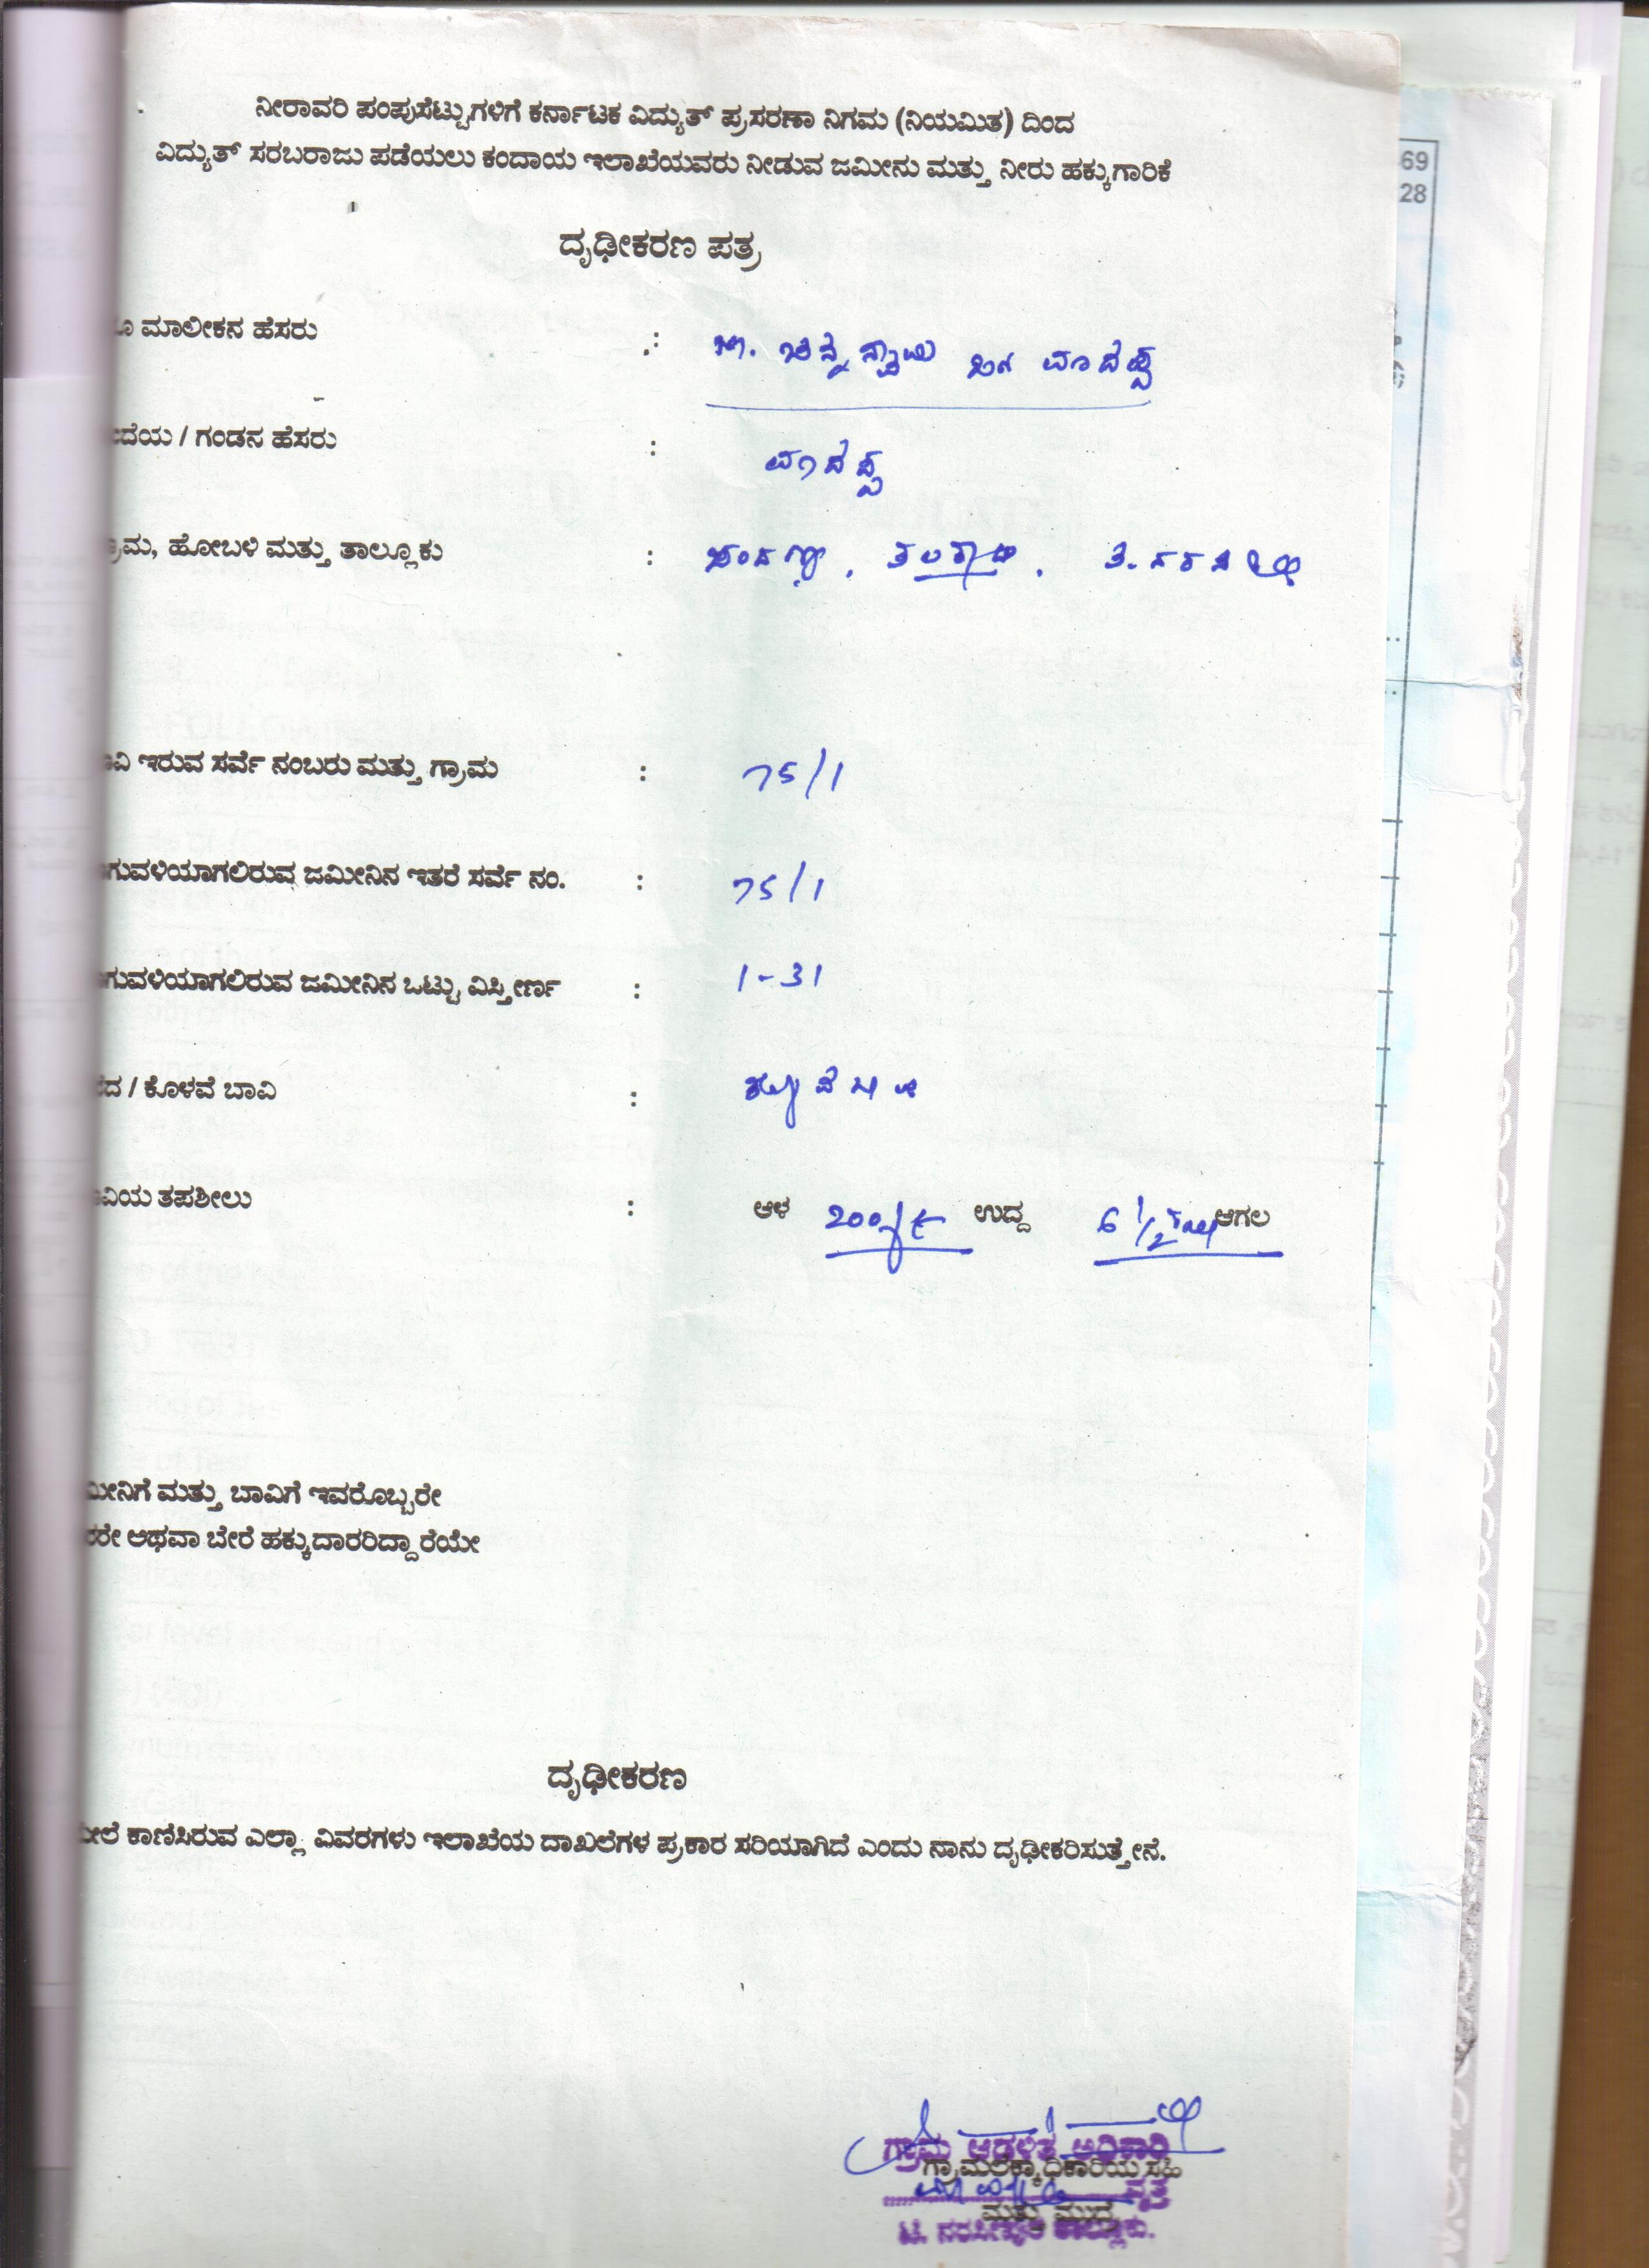 69
28
ನೀರಾವರಿ ಪಂಪುಸೆಟ್ಟುಗಳಿಗೆ ಕರ್ನಾಟಕ ವಿದ್ಯುತ್ ಪ್ರಸರಣಾ ನಿಗಮ (ನಿಯಮಿತ) ದಿಂದ
ವಿದ್ಯುತ್ ಸರಬರಾಜು ಪಡೆಯಲು ಕಂದಾಯ ಇಲಾಖೆಯವರು ನೀಡುವ ಜಮೀನು ಮತ್ತು ನೀರು ಹಕ್ಕುಗಾರಿಕೆ
ದೃಢೀಕರಣ ಪತ್ರ
ಮಾಲೀಕನ ಹೆಸರು : ಚಿನ್ನಸ್ವಾಮಿ ಬಿನ್ ಮಾದಪ್ಪ
ದೆಯ / ಗಂಡನ ಹೆಸರು : ಮಾದಪ್ಪ
ರಾಮ, ಹೋಬಳಿ ಮತ್ತು ತಾಲ್ಲೂಕು : ತಲಕಾಡು .
ವಿ ಇರುವ ಸರ್ವೆ ನಂಬರು ಮತ್ತು ಗ್ರಾಮ : 75/1
ಗುವಳಿಯಾಗಲಿರುವ ಜಮೀನಿನ ಇತರೆ ಸರ್ವೆ ನಂ. : 75/1
ಗುವಳಿಯಾಗಲಿರುವ ಜಮೀನಿನ ಒಟ್ಟು ವಿಸ್ತೀರ್ಣ : 1-31
ದ / ಕೊಳವೆ ಬಾವಿ :
ವಿಯ ತಪಶೀಲು : ಆಳ 200 ಉದ್ದ 6 1/2 ಆಗಲ
ಮೀನಿಗೆ ಮತ್ತು ಬಾವಿಗೆ ಇವರೊಬ್ಬರೇ
ರೇ ಅಥವಾ ಬೇರೆ ಹಕ್ಕುದಾರರಿದ್ದಾರೆಯೇ
ದೃಢೀಕರಣ
ಮೇಲೆ ಕಾಣಿಸಿರುವ ಎಲ್ಲಾ ವಿವರಗಳು ಇಲಾಖೆಯ ದಾಖಲೆಗಳ ಪ್ರಕಾರ ಸರಿಯಾಗಿದೆ ಎಂದು ನಾನು ದೃಢೀಕರಿಸುತ್ತೇನೆ.
ಗ್ರಾಮ ಆಡಳಿತ ಅಧಿಕಾರಿ
ಗ್ರಾಮಲೆಕ್ಕಾಧಿಕಾರಿಯ ಸಹಿ
ವೃತ್ತ
ಮತ್ತು ಮುದ್ರೆ
ಟಿ. ನರಸೀಪುರ ತಾಲ್ಲೂಕು.